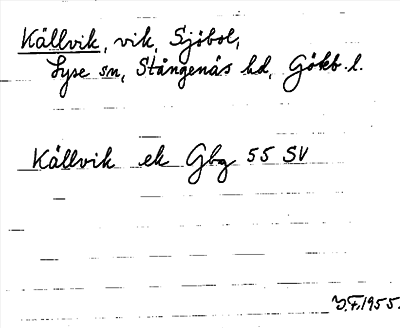 Källvik, vik, Sjöbol,
Lyse sn, Stångenäs hd, Gökb. l.
Källvik ek Gbg 55 SV
J.F. 1955.